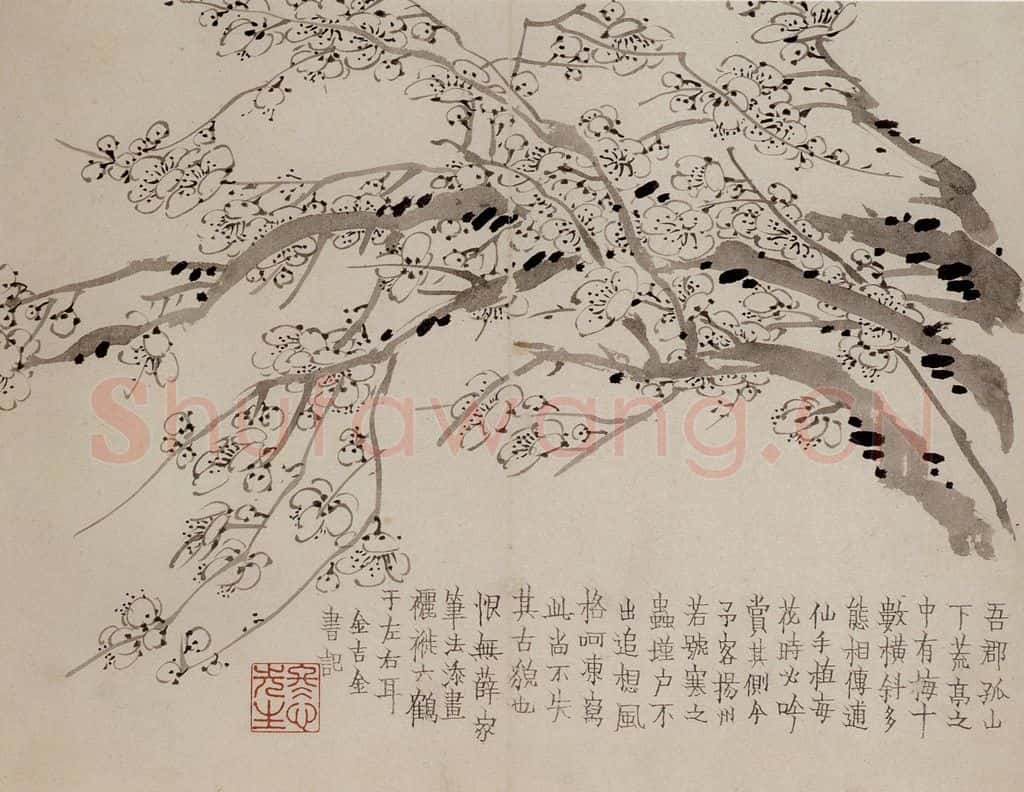 吾郡孤山
下荒亭之
中有梅十
數橫斜多
態相傳逋
仙手植每
花時必吟
賞其側今
予客揚州
若號寒之
蟲墐户不
出追想風
格呵凍寫
此尚不失
其古貌也
恨無薛家
筆法添畫
褷褷六鶴
于左右耳
金吉金
書記
Shufawang.CN